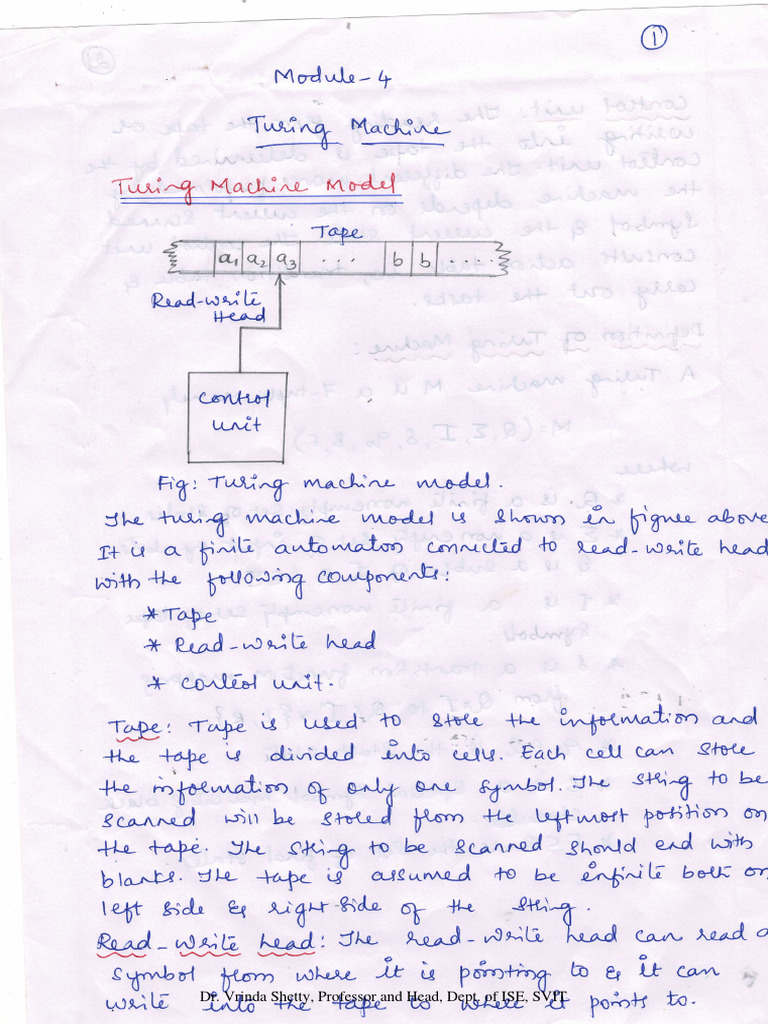 1
Module-4
Turing Machine
Turing Machine Model
Tape
a1 a2 a3 ... b b ....
Read-write
Head
control
unit
Fig: Turing machine model.
The turing machine model is shown in figure above
It is a finite automaton connected to read-write head
with the following components:
* Tape
* Read-write head
* control unit.
Tape: Tape is used to store the information and
the tape is divided into cells. Each cell can store
the information of only one symbol. The string to be
scanned will be stored from the leftmost position on
the tape. The string to be scanned should end with
blanks. The tape is assumed to be infinite both on
left side & right side of the string.
Read-write head: The read-write head can read a
symbol from where it is pointing to & it can
write into the tape to where it points to.
Dr. Vrinda Shetty, Professor and Head, Dept. of ISE, SVIT